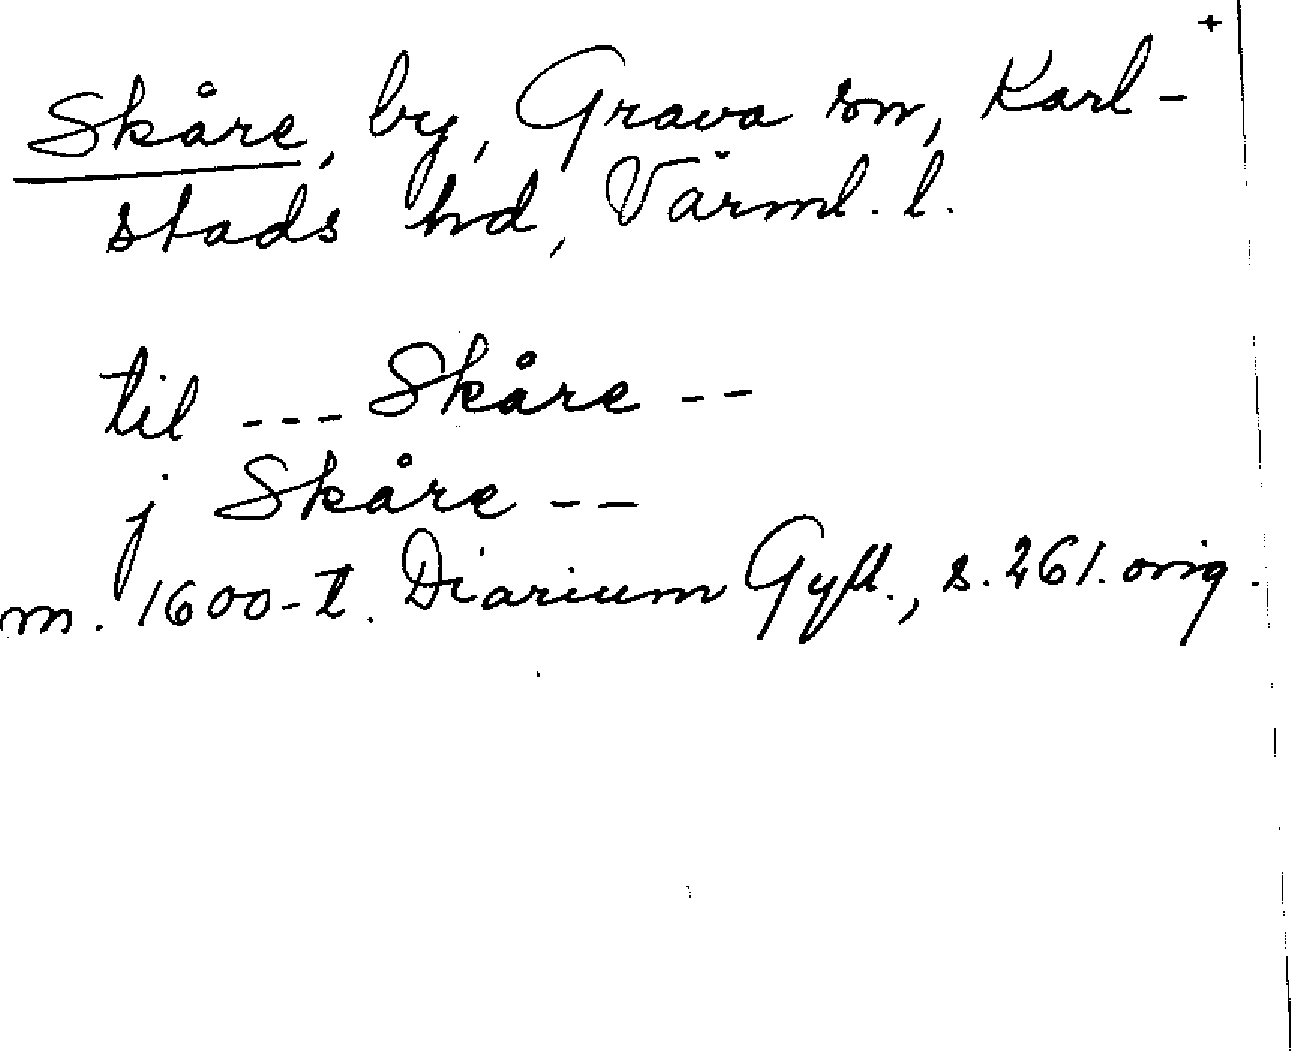 +
Skåre, by, Grava sn, Karl-
stads hd, Värml. l.
til --- Skåre --
j Skåre --
m. 1600-t. Diarium Gyll., s. 261. orig.